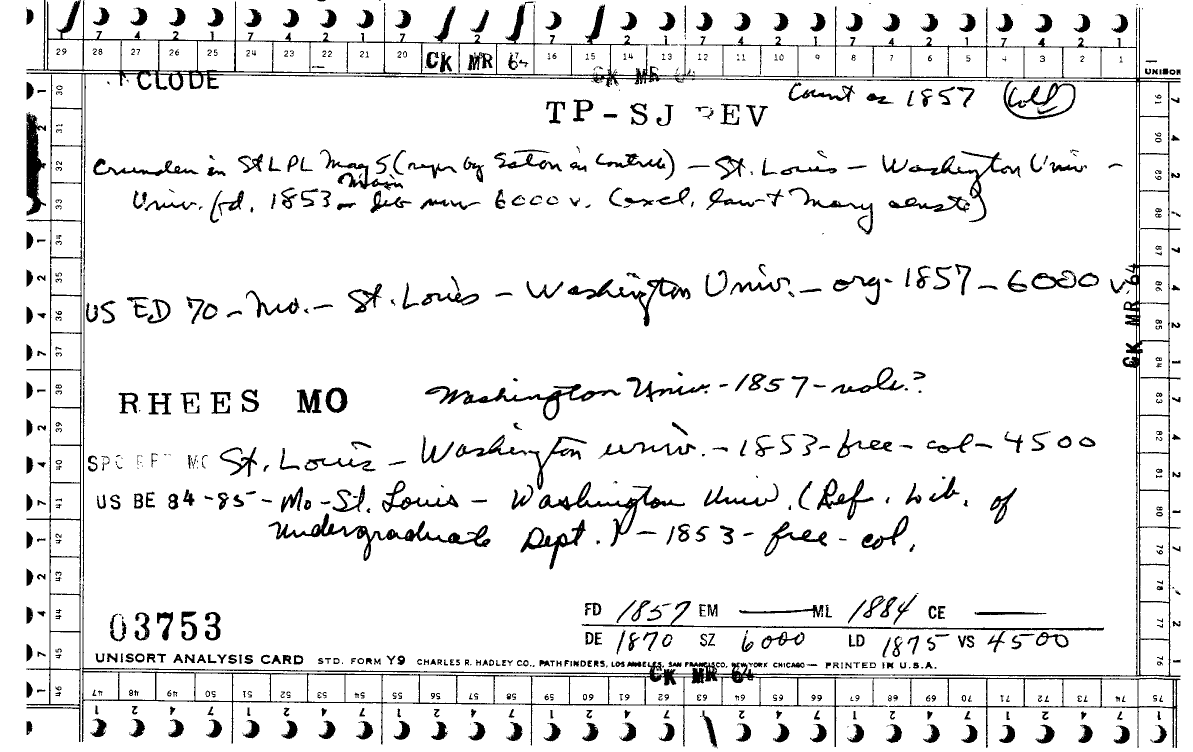 7 4 2 1 7 4 2 1 7 2 7 2 1 7 4 2 1 7 4 2 1 7 4 2 1
29 28 27 26 25 24 23 22 21 20 CK MR 64 16 15 14 13 12 11 10 9 8 7 6 5 4 3 2 1
CK MR 64
UNISOR
CLODE
Count as 1857 (Coll)
TP-SJ REV
Crunden in StLPL Mag 5 (repr by Eaton in Contrib) – St. Louis – Washington Univ. –
Univ. fd. 1853 – main lib now 6000 v. (excl. law + Mary Inst)
US ED 70 – Mo. – St. Louis – Washington Univ. – org. 1857 – 6000 v.
RHEES MO Washington Univ. - 1857 - vols.?
SPC REP MO St. Louis – Washington univ. – 1853 - free - col - 4500
US BE 84-85 - Mo - St. Louis – Washington Univ. (Ref. Lib. of
Undergraduate Dept.) – 1853 - free - col.
CK MR 64
03753
FD 1857 EM — ML 1884 CE —
DE 1870 SZ 6000 LD 1875 VS 4500
UNISORT ANALYSIS CARD STD. FORM Y9 CHARLES R. HADLEY CO., PATHFINDERS, LOS ANGELES, SAN FRANCISCO, NEW YORK CHICAGO — PRINTED IN U.S.A.
CK MR 64
30 31 32 33 34 35 36 37 38 39 40 41 42 43 44 45 46
91 90 89 88 87 86 85 84 83 82 81 80 79 78 77 76
47 48 49 50 51 52 53 54 55 56 57 58 59 60 61 62 63 64 65 66 67 68 69 70 71 72 73 74 75